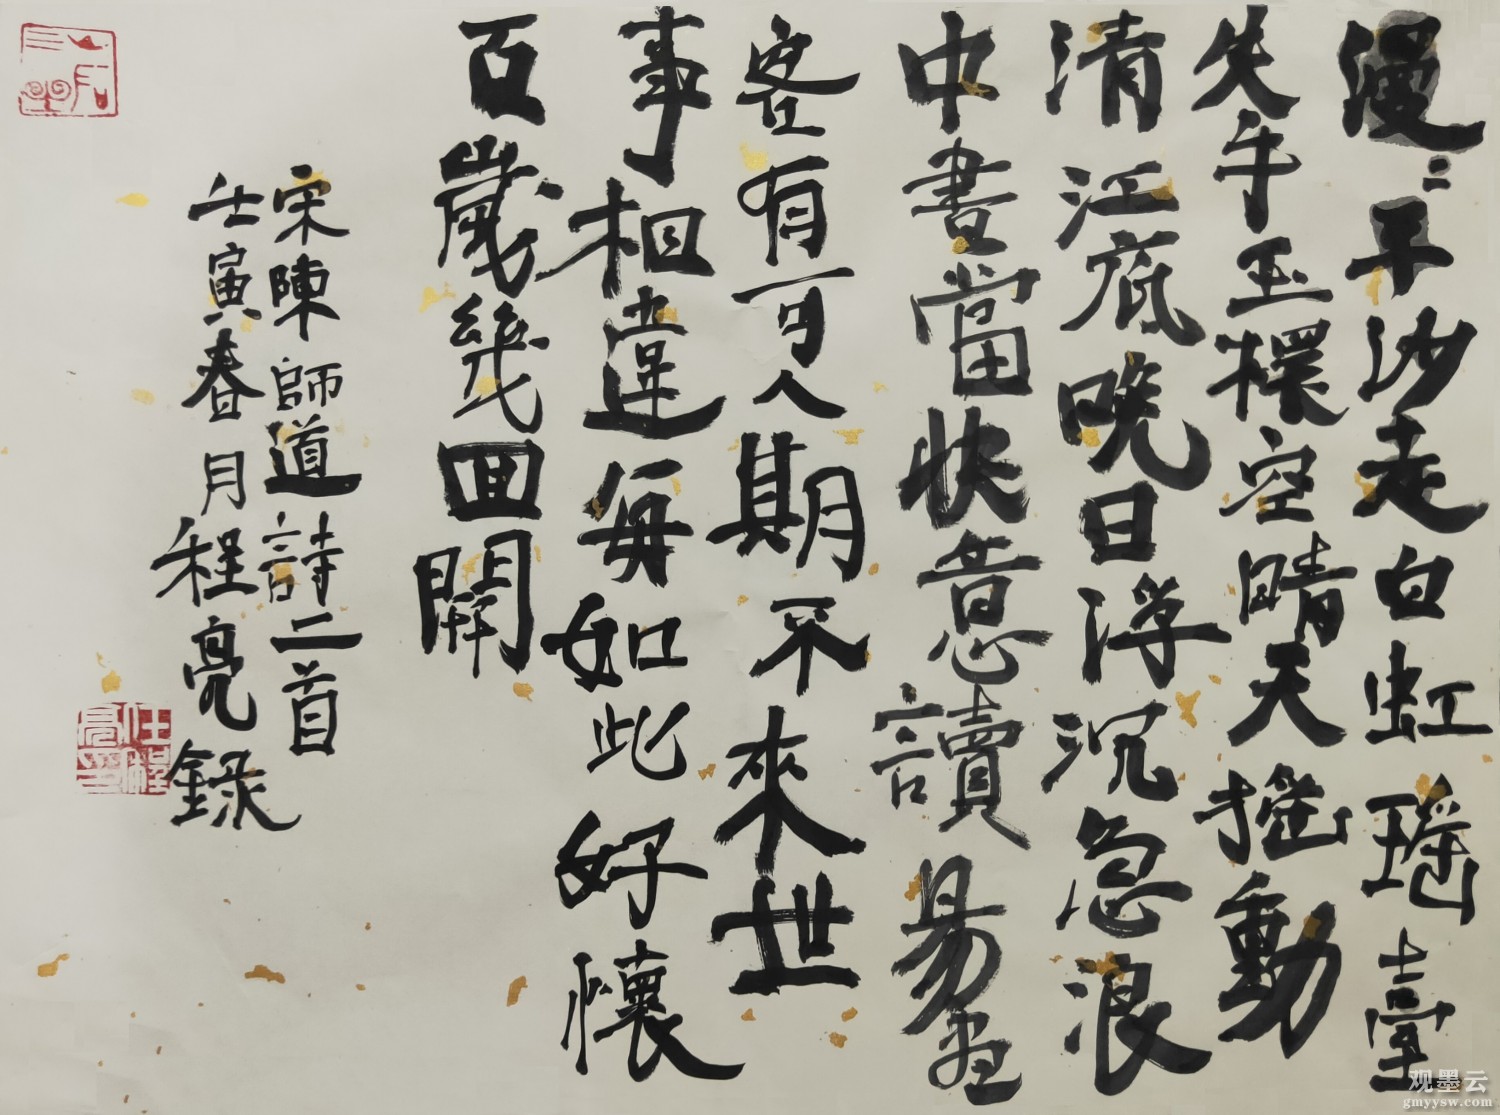 漫〻平沙走白虹瑤臺
失手玉空晴天摇動
清江底晚日浮沉急浪
中書當快意讀易盡
客有可人期不來世
事相違每如此好懷
百歲幾回開
宋陳師道詩二首
壬寅春月程亮録
观墨云
gmyysw.com